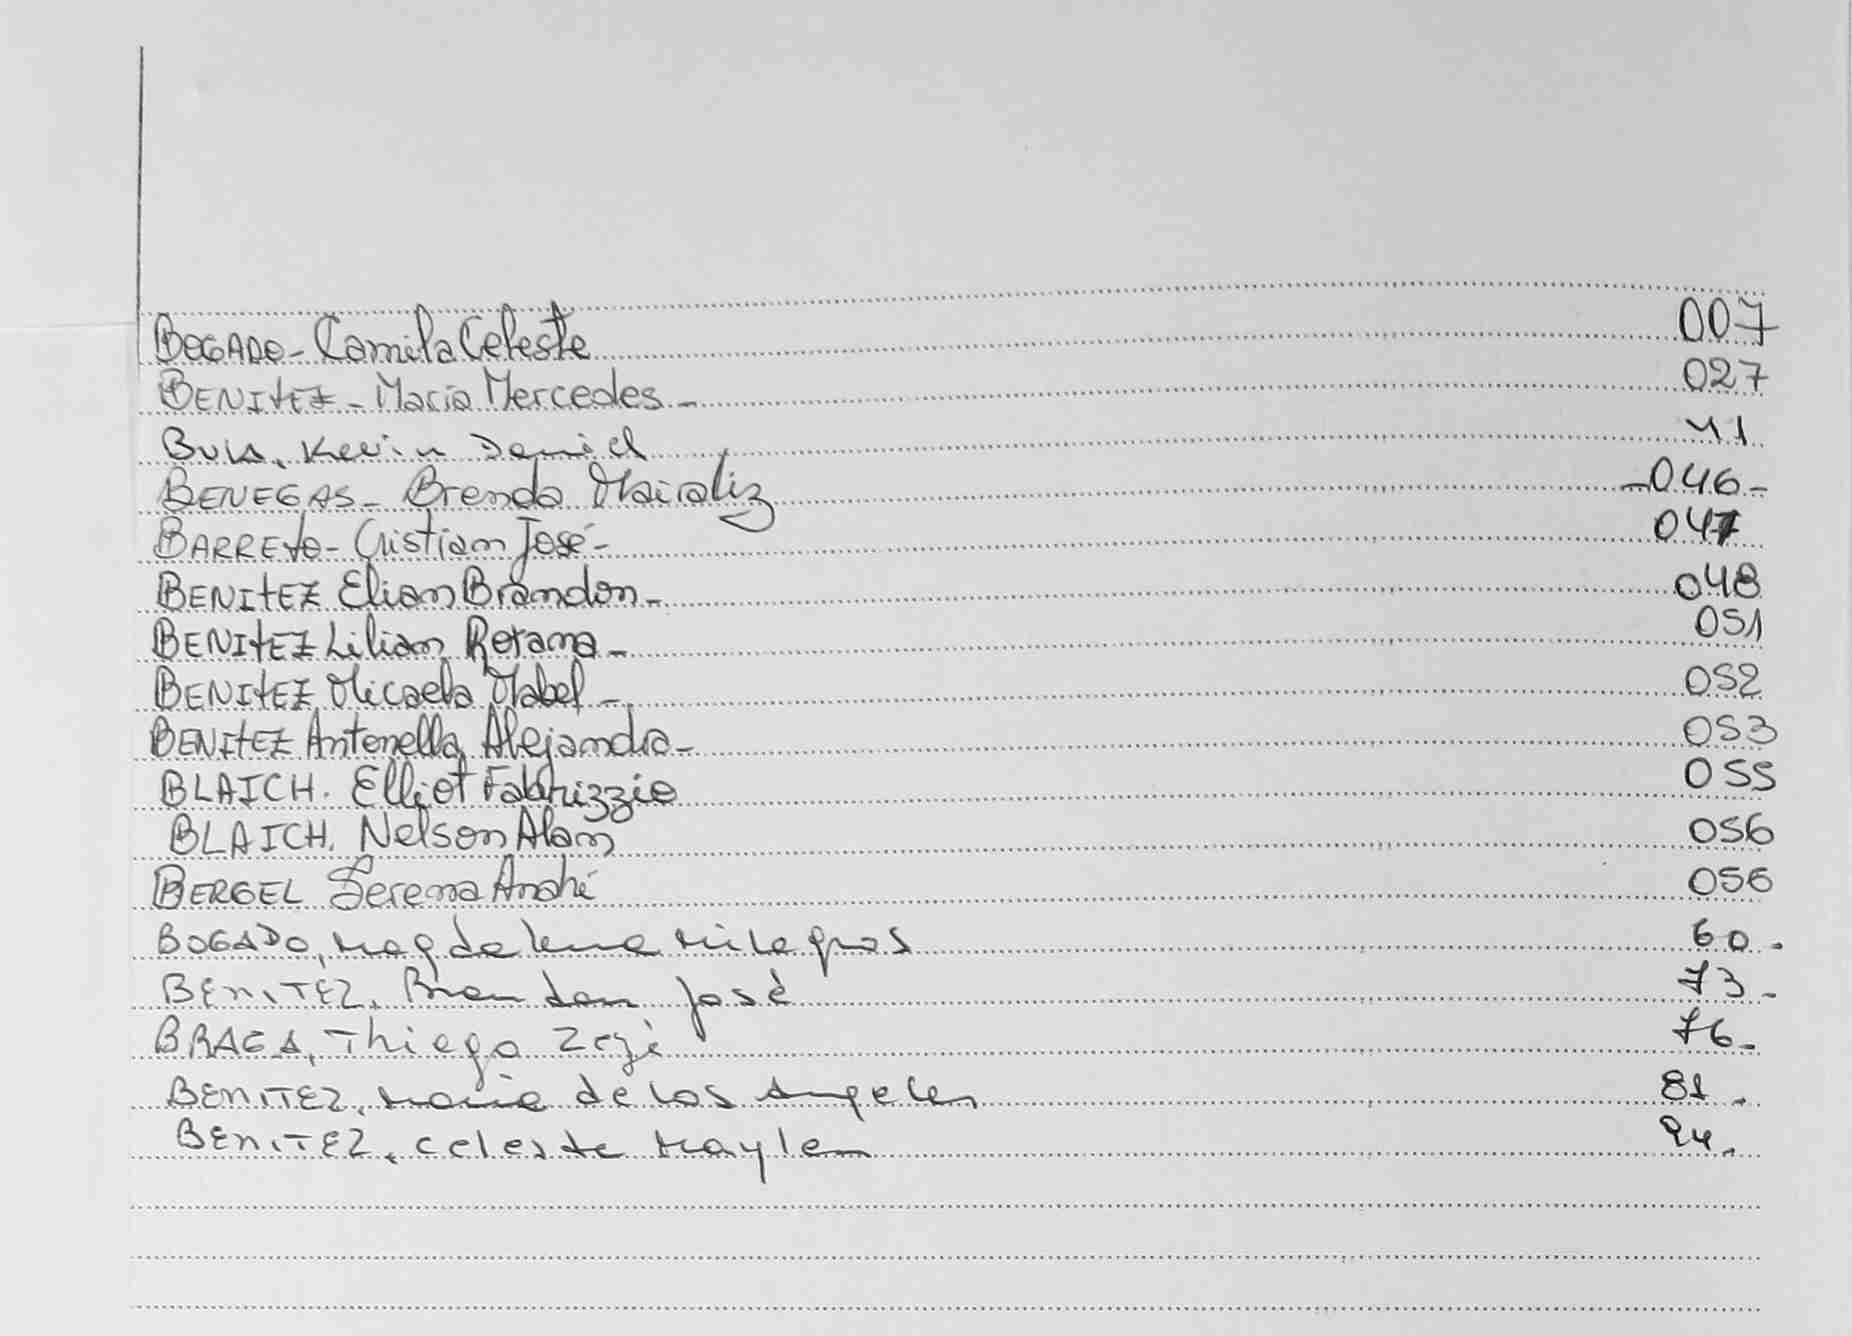 BOGADO - Camila Celeste 007
BENITEZ - María Mercedes - 027
BULA, Kevin Daniel 41
BENEGAS - Brenda Mailaliz - 046 -
BARRETO - Cristian José - 047
BENITEZ Elian Brandon - 048
BENITEZ Lilian Rorana - 051
BENITEZ Micaela Mabel - 052
BENITEZ Antonella Alejandra - 053
BLAICH. Elliot Fabrizzio 055
BLAICH. Nelson Alan 056
BERGEL Serena André 056
BOGADO, Magdalena Milagros 60.
BENITEZ, Brandon José 73 -
BRAGA, Thiego 76 -
BENITEZ, María de los Angeles 81.
BENITEZ, Celeste Maylen 94.